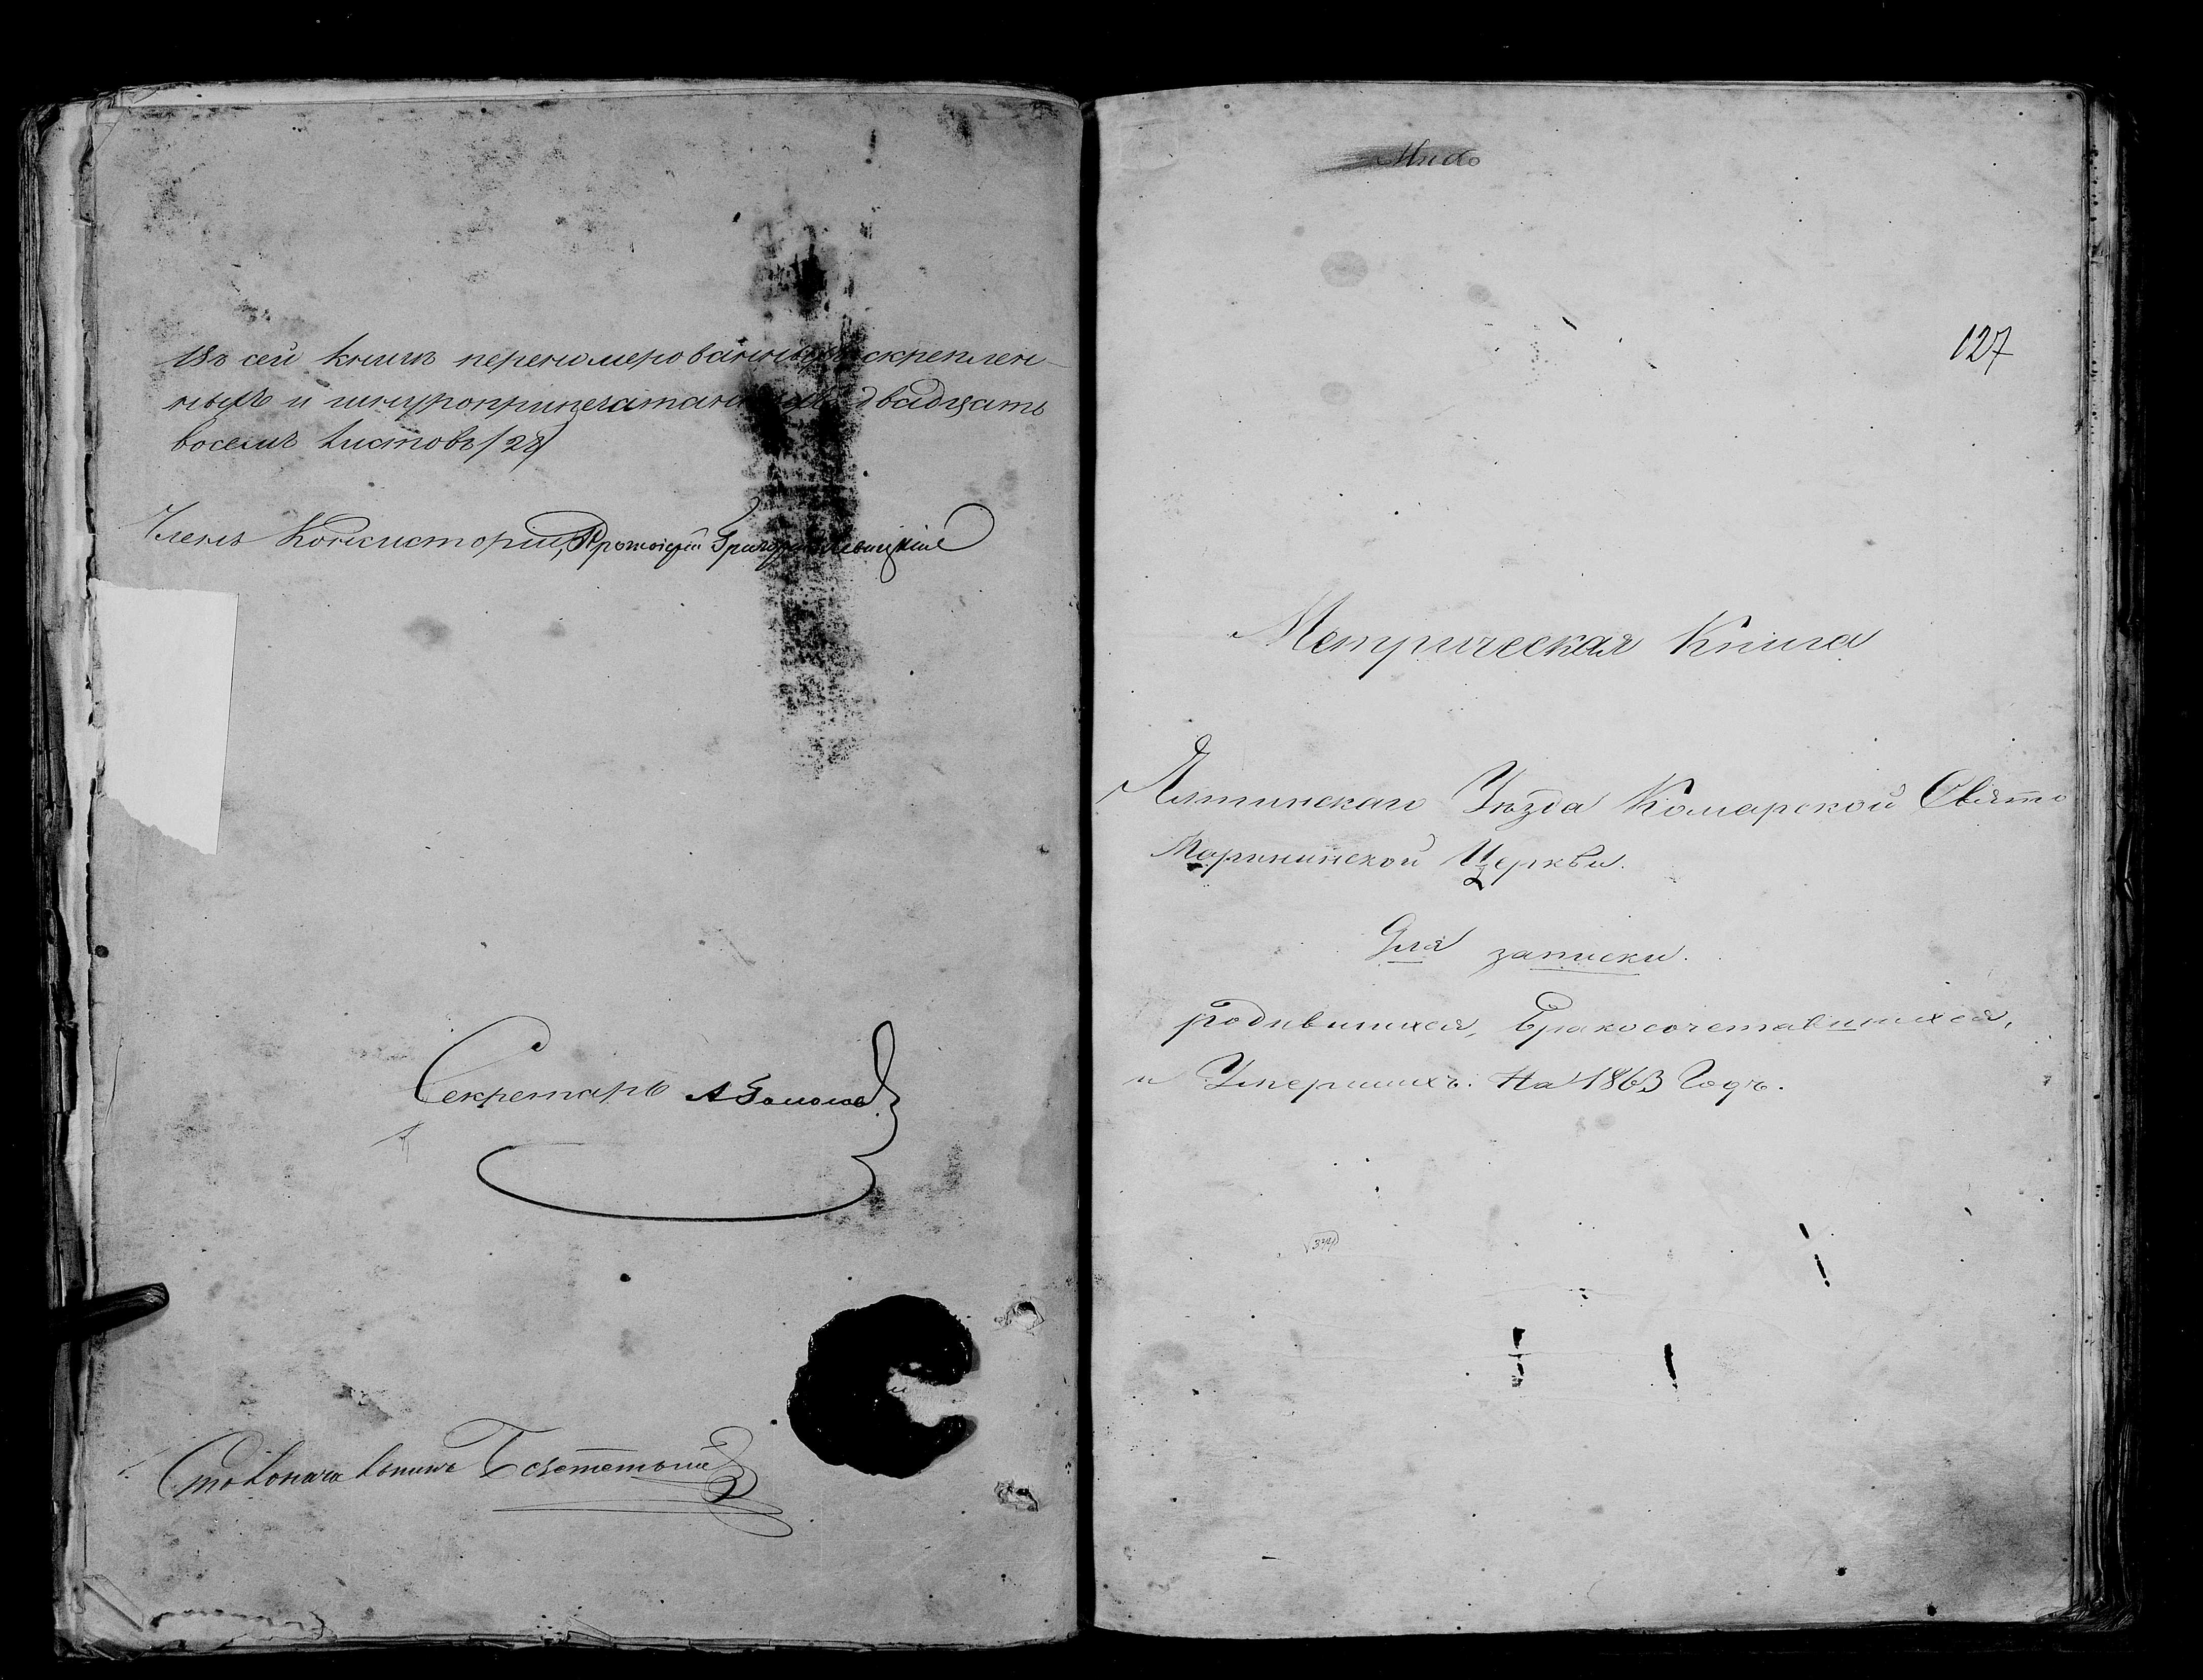 Въ сей книгѣ перенумерованныхъ скреплен-
ныхъ и шнуроприпечатанныхъ двадцать
восемь листовъ /28/
Членъ Консисторіи, Протоіерей Григорій Левицкій
Секретарь А
Столоначальникъ
127
Метрическая Книга
Ялтинскаго Уѣзда Комарской Свято
Марининской Церкви.
Для записки.
родившихся, Бракосочетавшихся,
и Умершихъ. На 1863 Годъ.